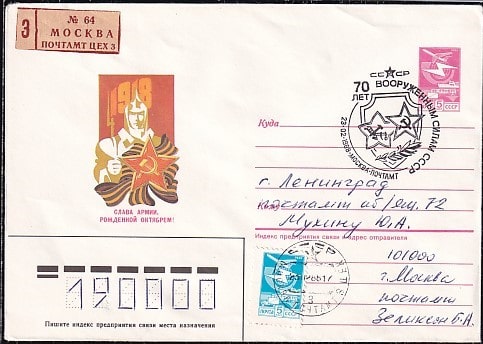 З
№ 64
МОСКВА
ПОЧТАМТ ЦЕХ 3
1918
СЛАВА АРМИИ,
РОЖДЕННОЙ ОКТЯБРЕМ!
СССР
70 ЛЕТ ВООРУЖЕННЫМ СИЛАМ СССР
23·02·1988·МОСКВА-ПОЧТАМТ
5 СССР
Куда
г. Ленинград
почтамт а/я 72
Кому
Мухину Ю.А.
Индекс предприятия связи и адрес отправителя
101000
г. Москва
почтамт
Зеликсен Б.А.
ПОЧТА 5 СССР
СССР
190000
Пишите индекс предприятия связи места назначения